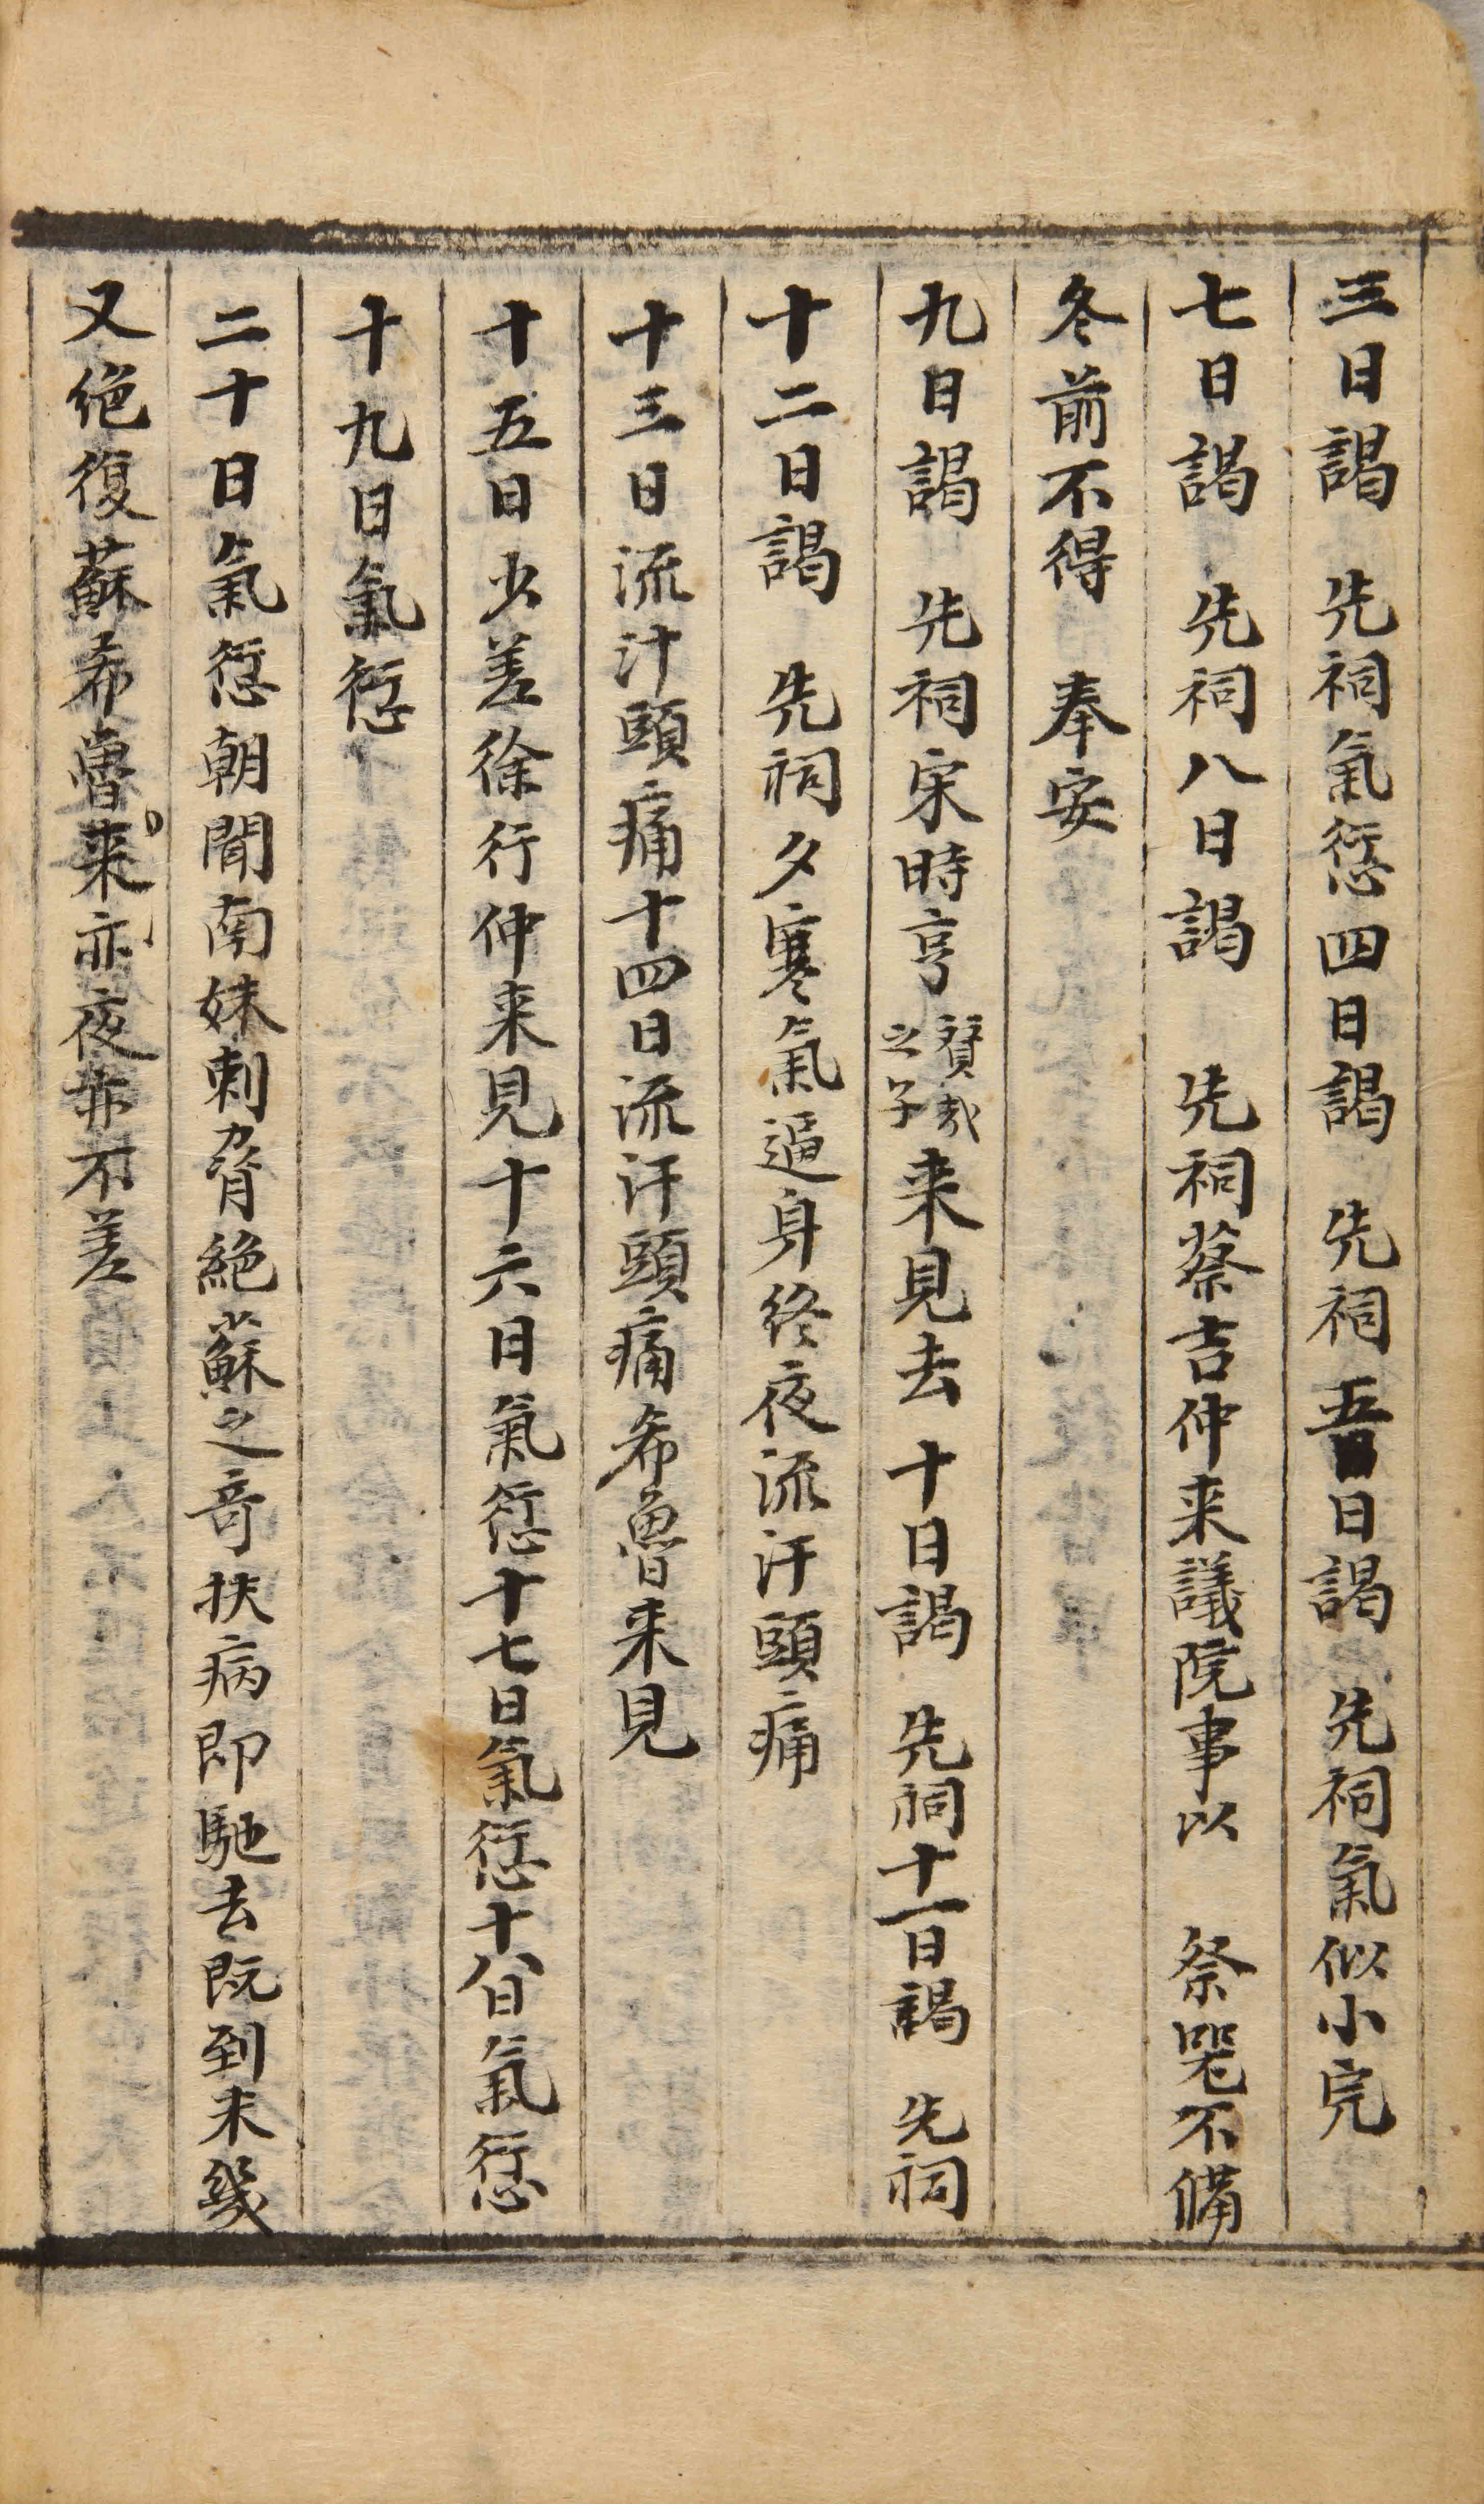 三日謁　先祠氣愆四日謁　先祠五日謁　先祠氣似小完
七日謁　先祠八日謁　先祠蔡吉仲来議院事以　祭器不備
冬前不得　奉安
九日謁　先祠宋時亨賛哉之子来見去十日謁　先祠十一日謁　先祠
十二日謁　先祠夕寒氣逼身終夜流汗頭痛
十三日流汁頭痛十四日流汗頭痛希魯来見
十五日少差徐行仲来見十六日氣愆十七日氣愆十八日氣愆
十九日氣愆
二十日氣愆朝聞南妹刺脅絶蘇之奇扶病即馳去既到未幾
又绝復蘇希魯来亦夜亦不差